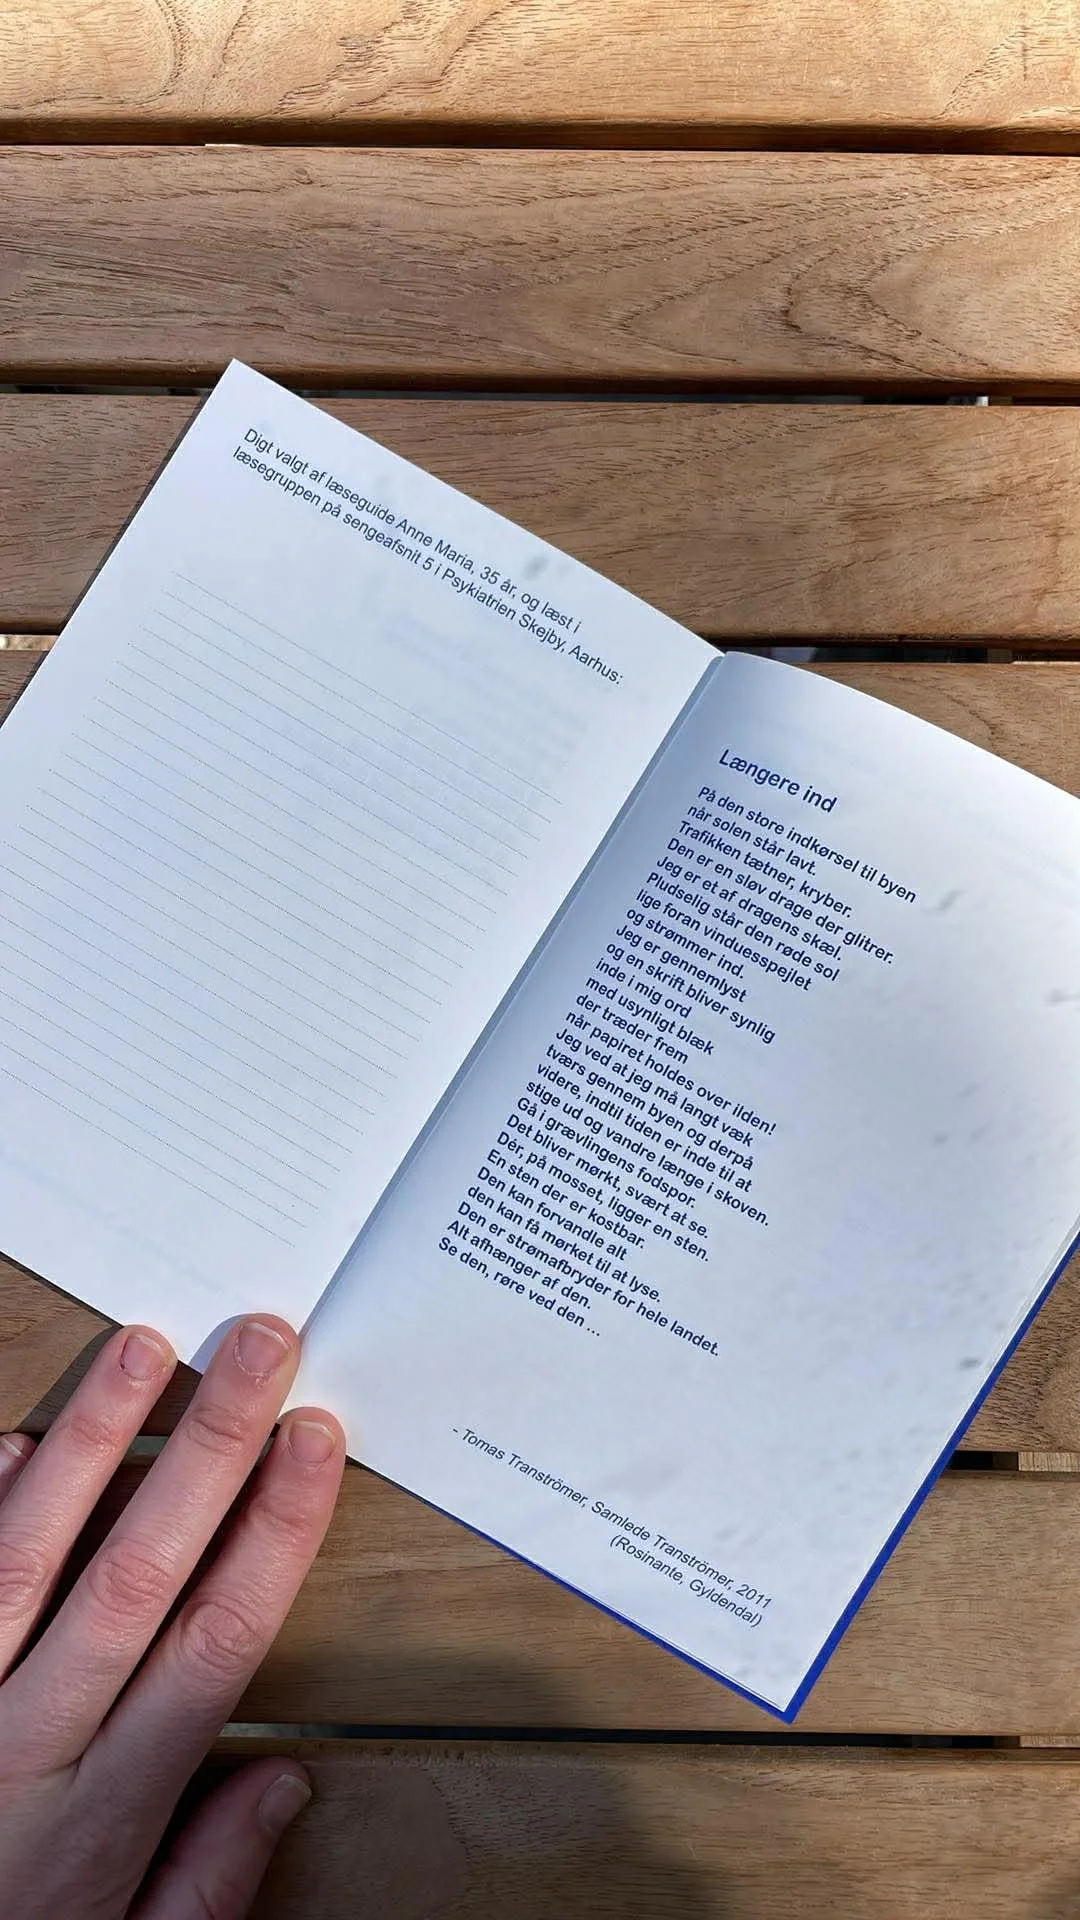 Digt valgt af læseguide Anne Maria, 35 år, og læst i
læsegruppen på sengeafsnit 5 i Psykiatrien Skejby, Aarhus:
Længere ind
På den store indkørsel til byen
når solen står lavt.
Trafikken tætner, kryber.
Den er en sløv drage der glitrer.
Jeg er et af dragens skæl.
Pludselig står den røde sol
lige foran vinduesspejlet
og strømmer ind.
Jeg er gennemlyst
og en skrift bliver synlig
inde i mig ord
med usynligt blæk
der træder frem
når papiret holdes over ilden!
Jeg ved at jeg må langt væk
tværs gennem byen og derpå
videre, indtil tiden er inde til at
stige ud og vandre længe i skoven.
Gå i grævlingens fodspor.
Det bliver mørkt, svært at se.
Dér, på mosset, ligger en sten.
En sten der er kostbar.
Den kan forvandle alt
den kan få mørket til at lyse.
Den er strømafbryder for hele landet.
Alt afhænger af den.
Se den, røre ved den ...
- Tomas Tranströmer, Samlede Tranströmer, 2011
(Rosinante, Gyldendal)